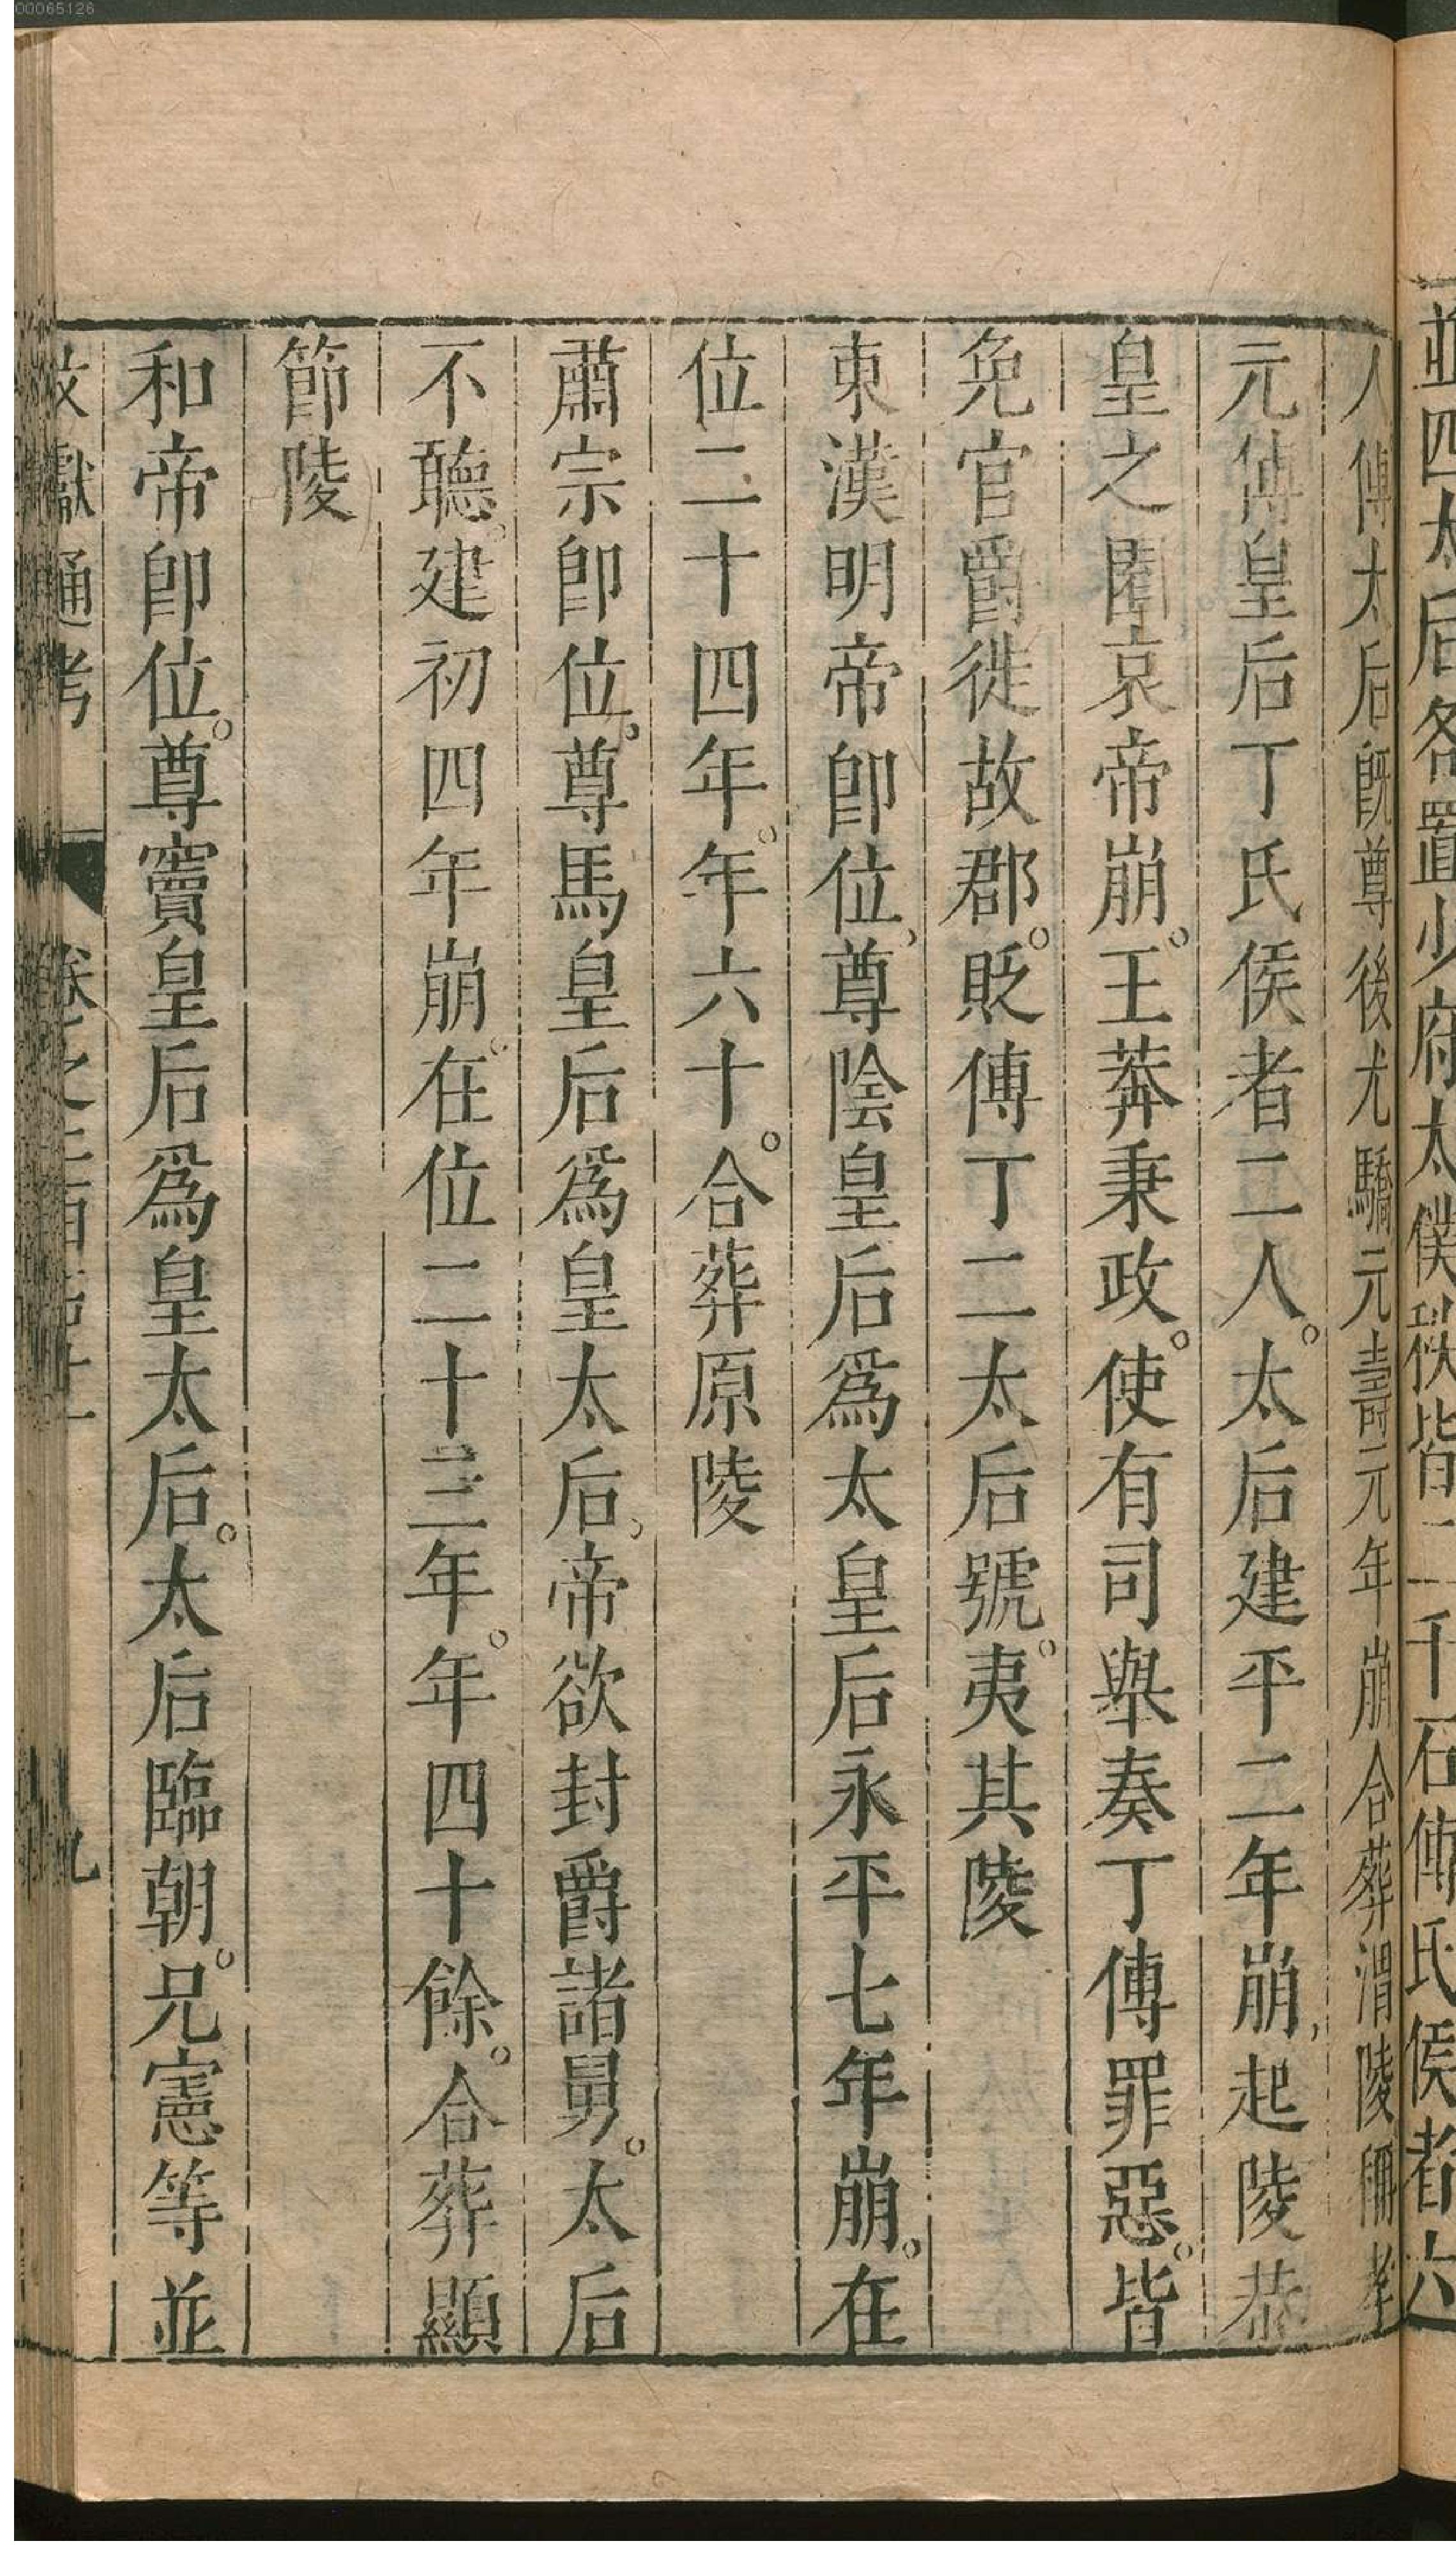 00065126
並四太后各置少府太僕秩皆二千石傅氏侯者六
人傅太后旣尊後尤驕元壽元年崩合葬渭陵稱孝
元傅皇后丁氏侯者二人。太后建平二年崩,起陵恭
皇之園哀帝崩。王莽秉政。使有司舉奏丁傅罪惡。皆
免官爵徙故郡。貶傅丁二太后號。夷其陵
東漢明帝卽位,尊陰皇后爲太皇后永平七年崩。在
位二十四年。年六十。合葬原陵
肅宗卽位。尊馬皇后爲皇太后,帝欲封爵諸舅。太后
不聽。建初四年崩。在位二十三年。年四十餘。合葬顯
節陵
和帝卽位。尊竇皇后爲皇太后。太后臨朝。兄憲等並
文獻通考 卷之二百五十一 九